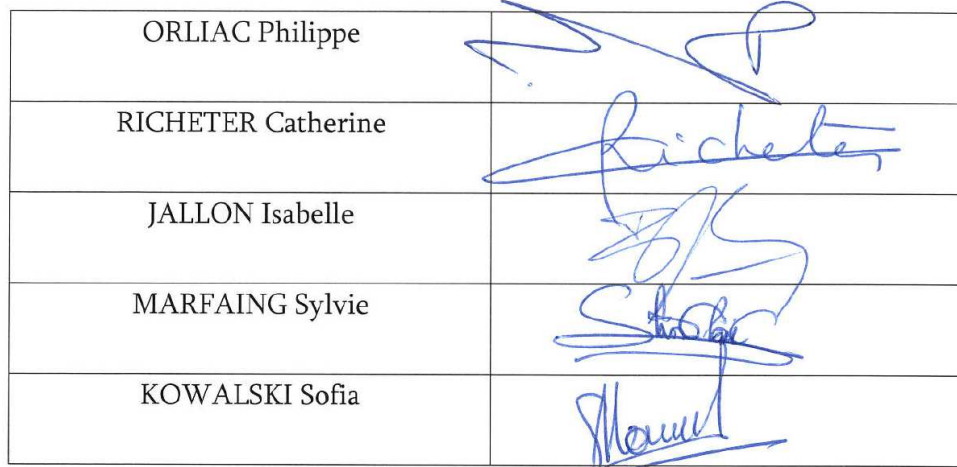 ORLIAC Philippe
RICHETER Catherine
Richeter
JALLON Isabelle
MARFAING Sylvie
KOWALSKI Sofia